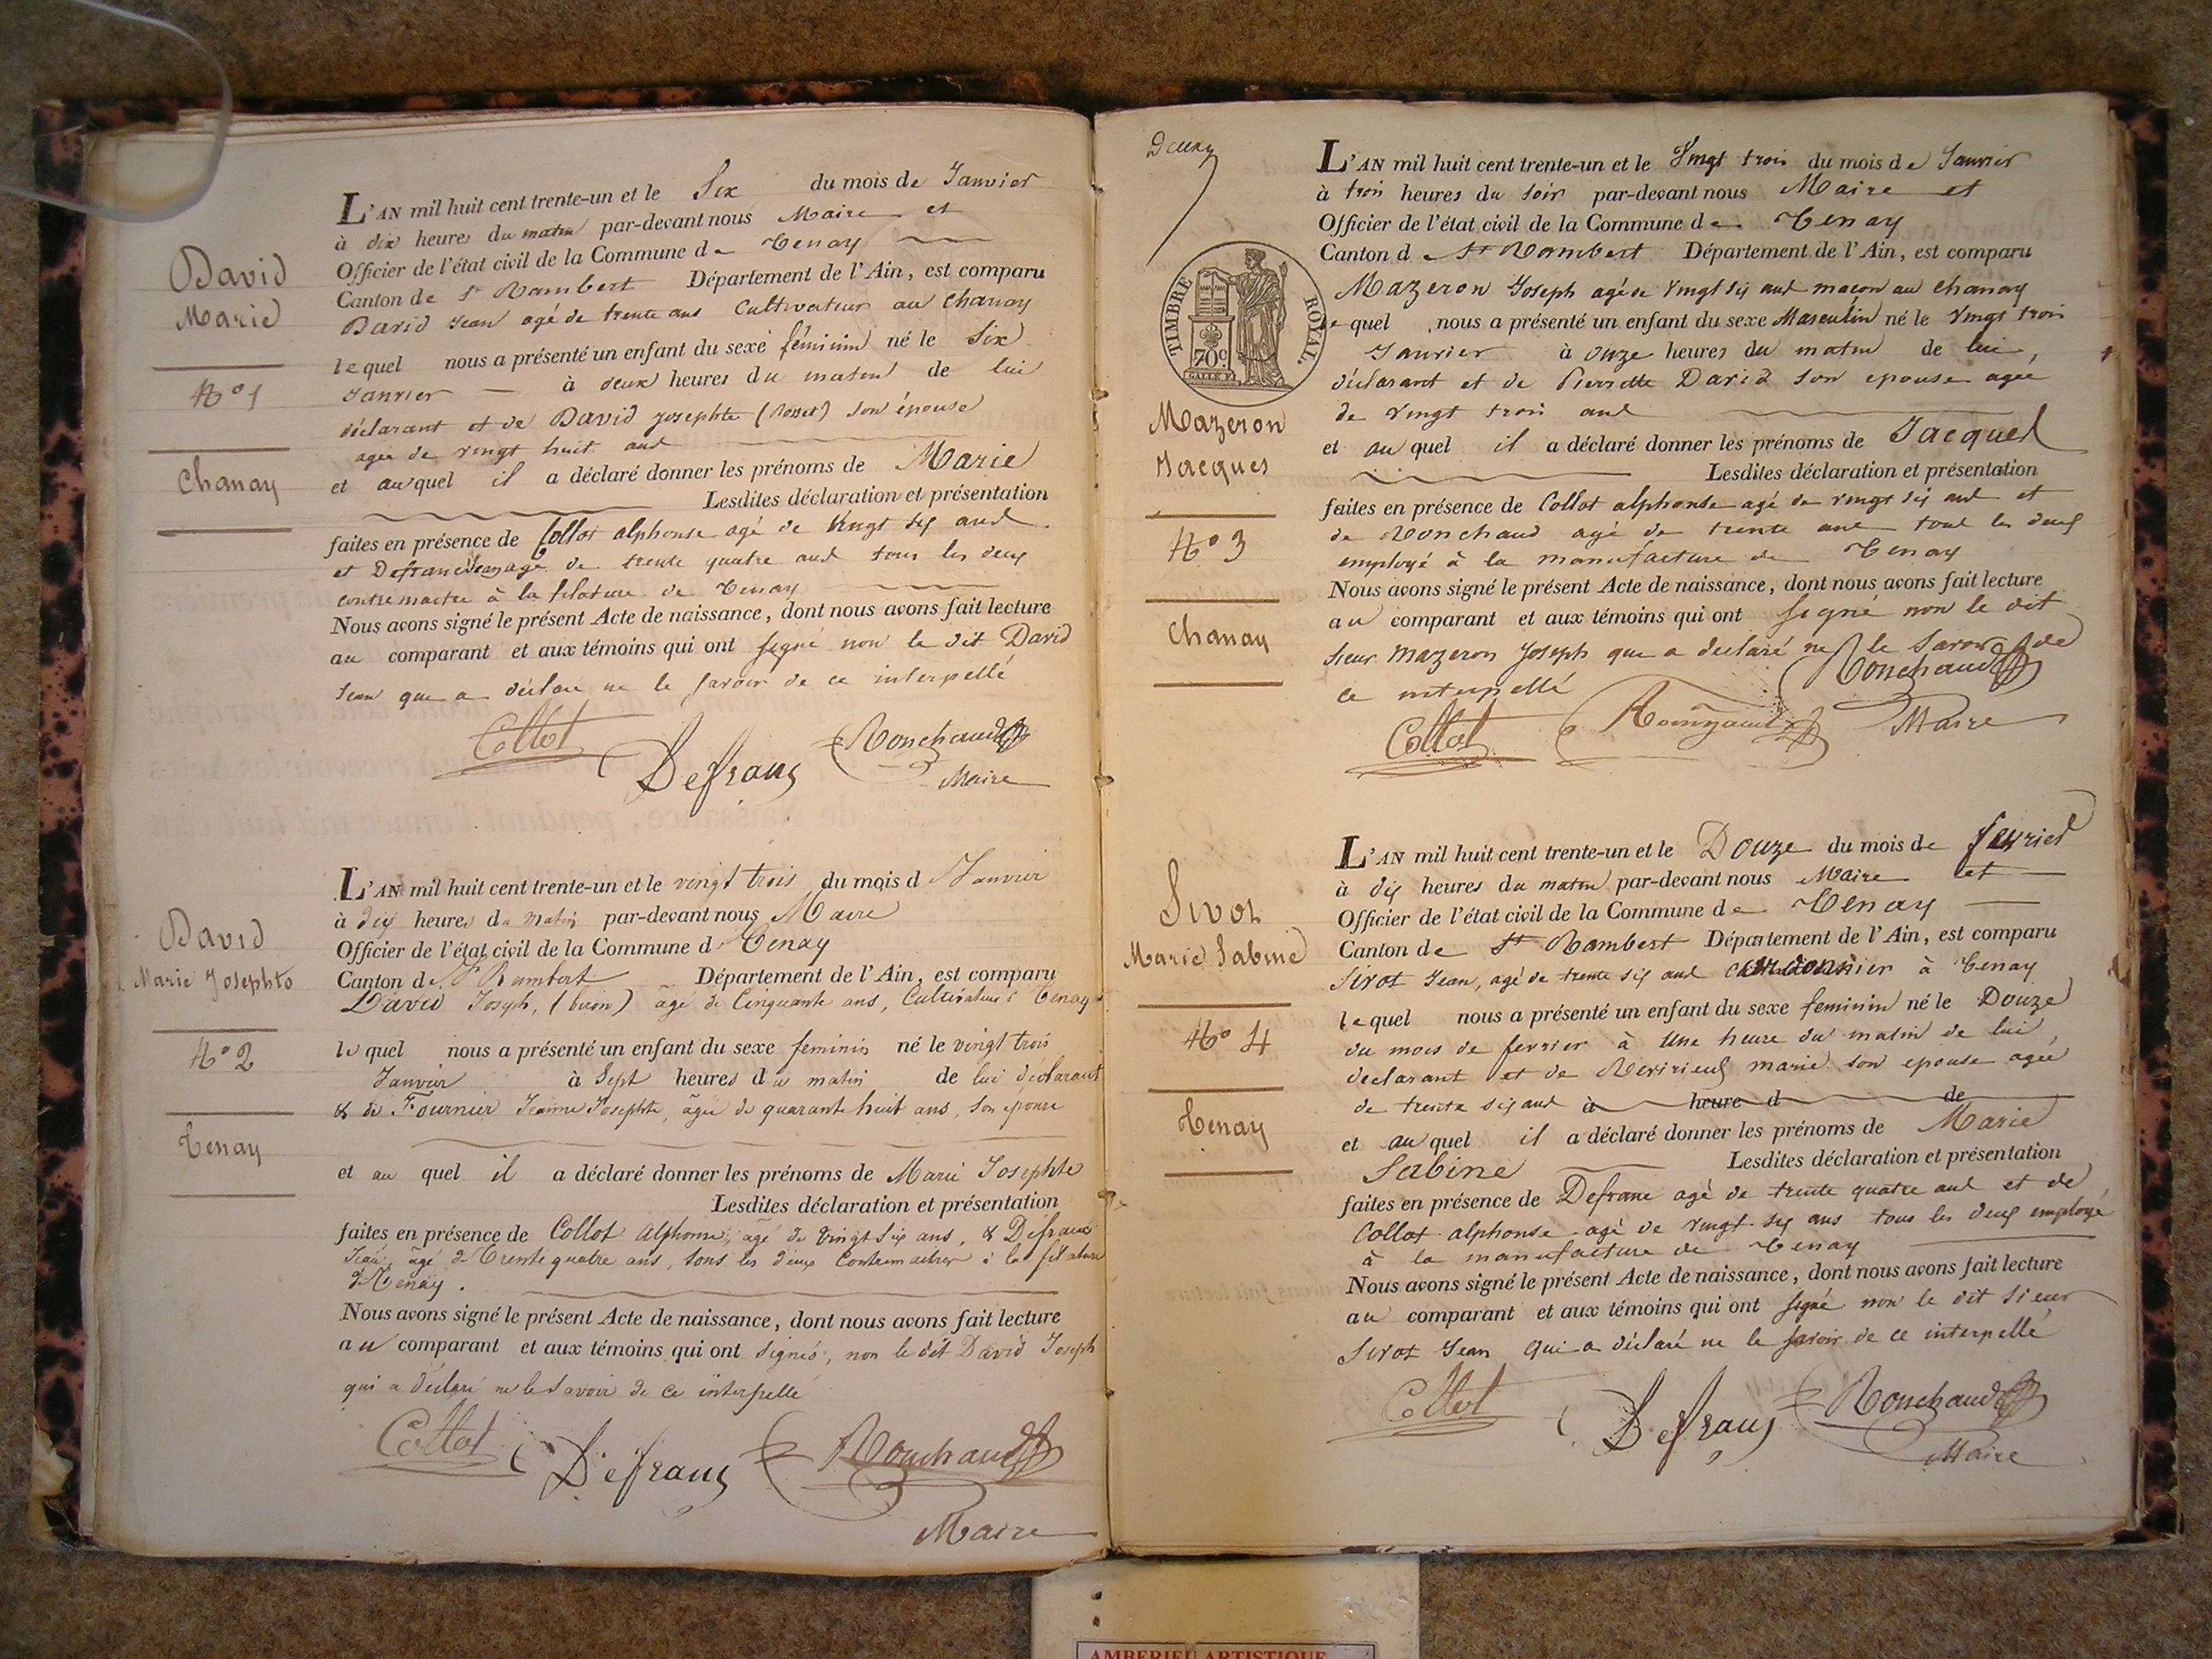 David
Marie
N° 1
Chanay
L'AN mil huit cent trente-un et le Six du mois de Janvier
à dix heures du matin par-devant nous Maire et
Officier de l'état civil de la Commune de Tenay
Canton de St Rambert Département de l'Ain, est comparu
David Jean agé de trente ans Cultivateur au Chanay
lequel nous a présenté un enfant du sexe féminin né le Six
Janvier à deux heures du matin de lui
déclarant et de David Josephte (Rosset) son épouse
agee de vingt huit ans
et au quel il a déclaré donner les prénoms de Marie
Lesdites déclaration et présentation
faites en présence de Collot alphonse agé de vingt six ans
et Defranc Jean agé de trente quatre ans tous les deux
contremaitre à la filature de Tenay
Nous avons signé le présent Acte de naissance, dont nous avons fait lecture
au comparant et aux témoins qui ont signé non le dit David
Jean que a déclaré ne le savoir de ce interpellé
Collot
Defranc
Ronchaud
Maire
David
Marie Josephte
N° 2
Tenay
L'AN mil huit cent trente-un et le vingt trois du mois d Janvier
à dix heures du matin par-devant nous Maire
Officier de l'état civil de la Commune d Tenay
Canton de St Rambert Département de l'Ain, est comparu
David Joseph, âgé de Cinquante ans, Cultivateur à Tenay
lequel nous a présenté un enfant du sexe feminin né le vingt trois
Janvier à Sept heures du matin de lui déclarant
& de Fournier Jeanne Josephte, âgée de quarante huit ans, son epouse
et au quel il a déclaré donner les prénoms de Marie Josephte
Lesdites déclaration et présentation
faites en présence de Collot Alphonse, âgé de vingt six ans, & Defranc
Jean, âgé de Trente quatre ans, tous les deux Contremaitres à la filature
de Tenay.
Nous avons signé le présent Acte de naissance, dont nous avons fait lecture
au comparant et aux témoins qui ont signés, non le dit David Joseph
qui a déclaré ne le savoir de ce interpellé
Collot
Defranc
Ronchaud
Maire
TIMBRE ROYAL.
70c
Mazeron
Jacques
N° 3
Chanay
L'AN mil huit cent trente-un et le Vingt trois du mois de Janvier
à trois heures du soir par-devant nous Maire et
Officier de l'état civil de la Commune de Tenay
Canton d St Rambert Département de l'Ain, est comparu
Mazeron Joseph agé de vingt six ans maçon au Chanay
lequel nous a présenté un enfant du sexe Masculin né le vingt trois
Janvier à onze heures du matin de lui,
déclarant et de Pierrette David son epouse agee
de vingt trois ans
et au quel il a déclaré donner les prénoms de Jacques
Lesdites déclaration et présentation
faites en présence de Collot alphonse agé de vingt six ans et
de Ronchaud agé de trente ans tous les deux
employé à la manufacture de Tenay
Nous avons signé le présent Acte de naissance, dont nous avons fait lecture
au comparant et aux témoins qui ont signé non le dit
sieur Mazeron Joseph que a déclaré ne le savoir de
ce interpellé
Collot
Ronchaud
Maire
Sivot
Marie Sabine
N° 4
Tenay
L'AN mil huit cent trente-un et le Douze du mois de fevrier
à dix heures du matin par-devant nous Maire et
Officier de l'état civil de la Commune de Tenay
Canton de St Rambert Département de l'Ain, est comparu
Sivot Jean, agé de trente six ans cordonnier à Tenay
lequel nous a présenté un enfant du sexe feminin né le Douze
du mois de fevrier à Une heure du matin de lui
declarant et de marie son epouse agée
de trente six ans à heure d de
et au quel il a déclaré donner les prénoms de Marie
Sabine Lesdites déclaration et présentation
faites en présence de Defranc agé de trente quatre ans et de
Collot alphonse agé de vingt six ans tous les deux employé
à la manufacture de Tenay
Nous avons signé le présent Acte de naissance, dont nous avons fait lecture
au comparant et aux témoins qui ont signé non le dit sieur
Sivot Jean qui a déclaré ne le savoir de ce interpellé
Collot
Defranc
Ronchaud
Maire
AMBERIEU ARTISTIQUE